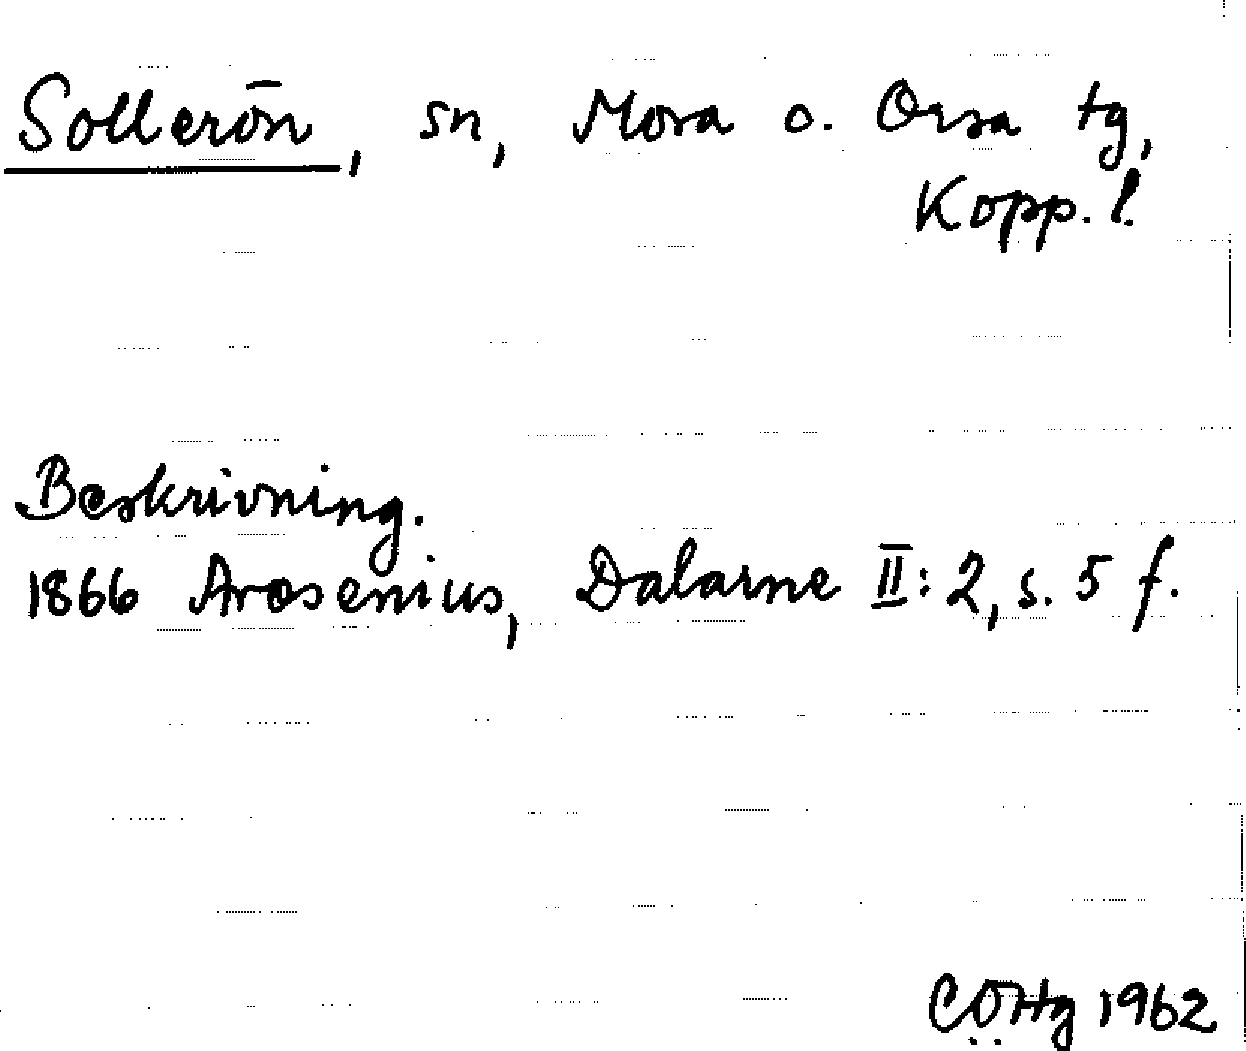 Sollerön, sn, Mora o. Orsa tg,
Kopp. l.
Beskrivning.
1866 Arosenius, Dalarne II:2, s. 5 f.
1962